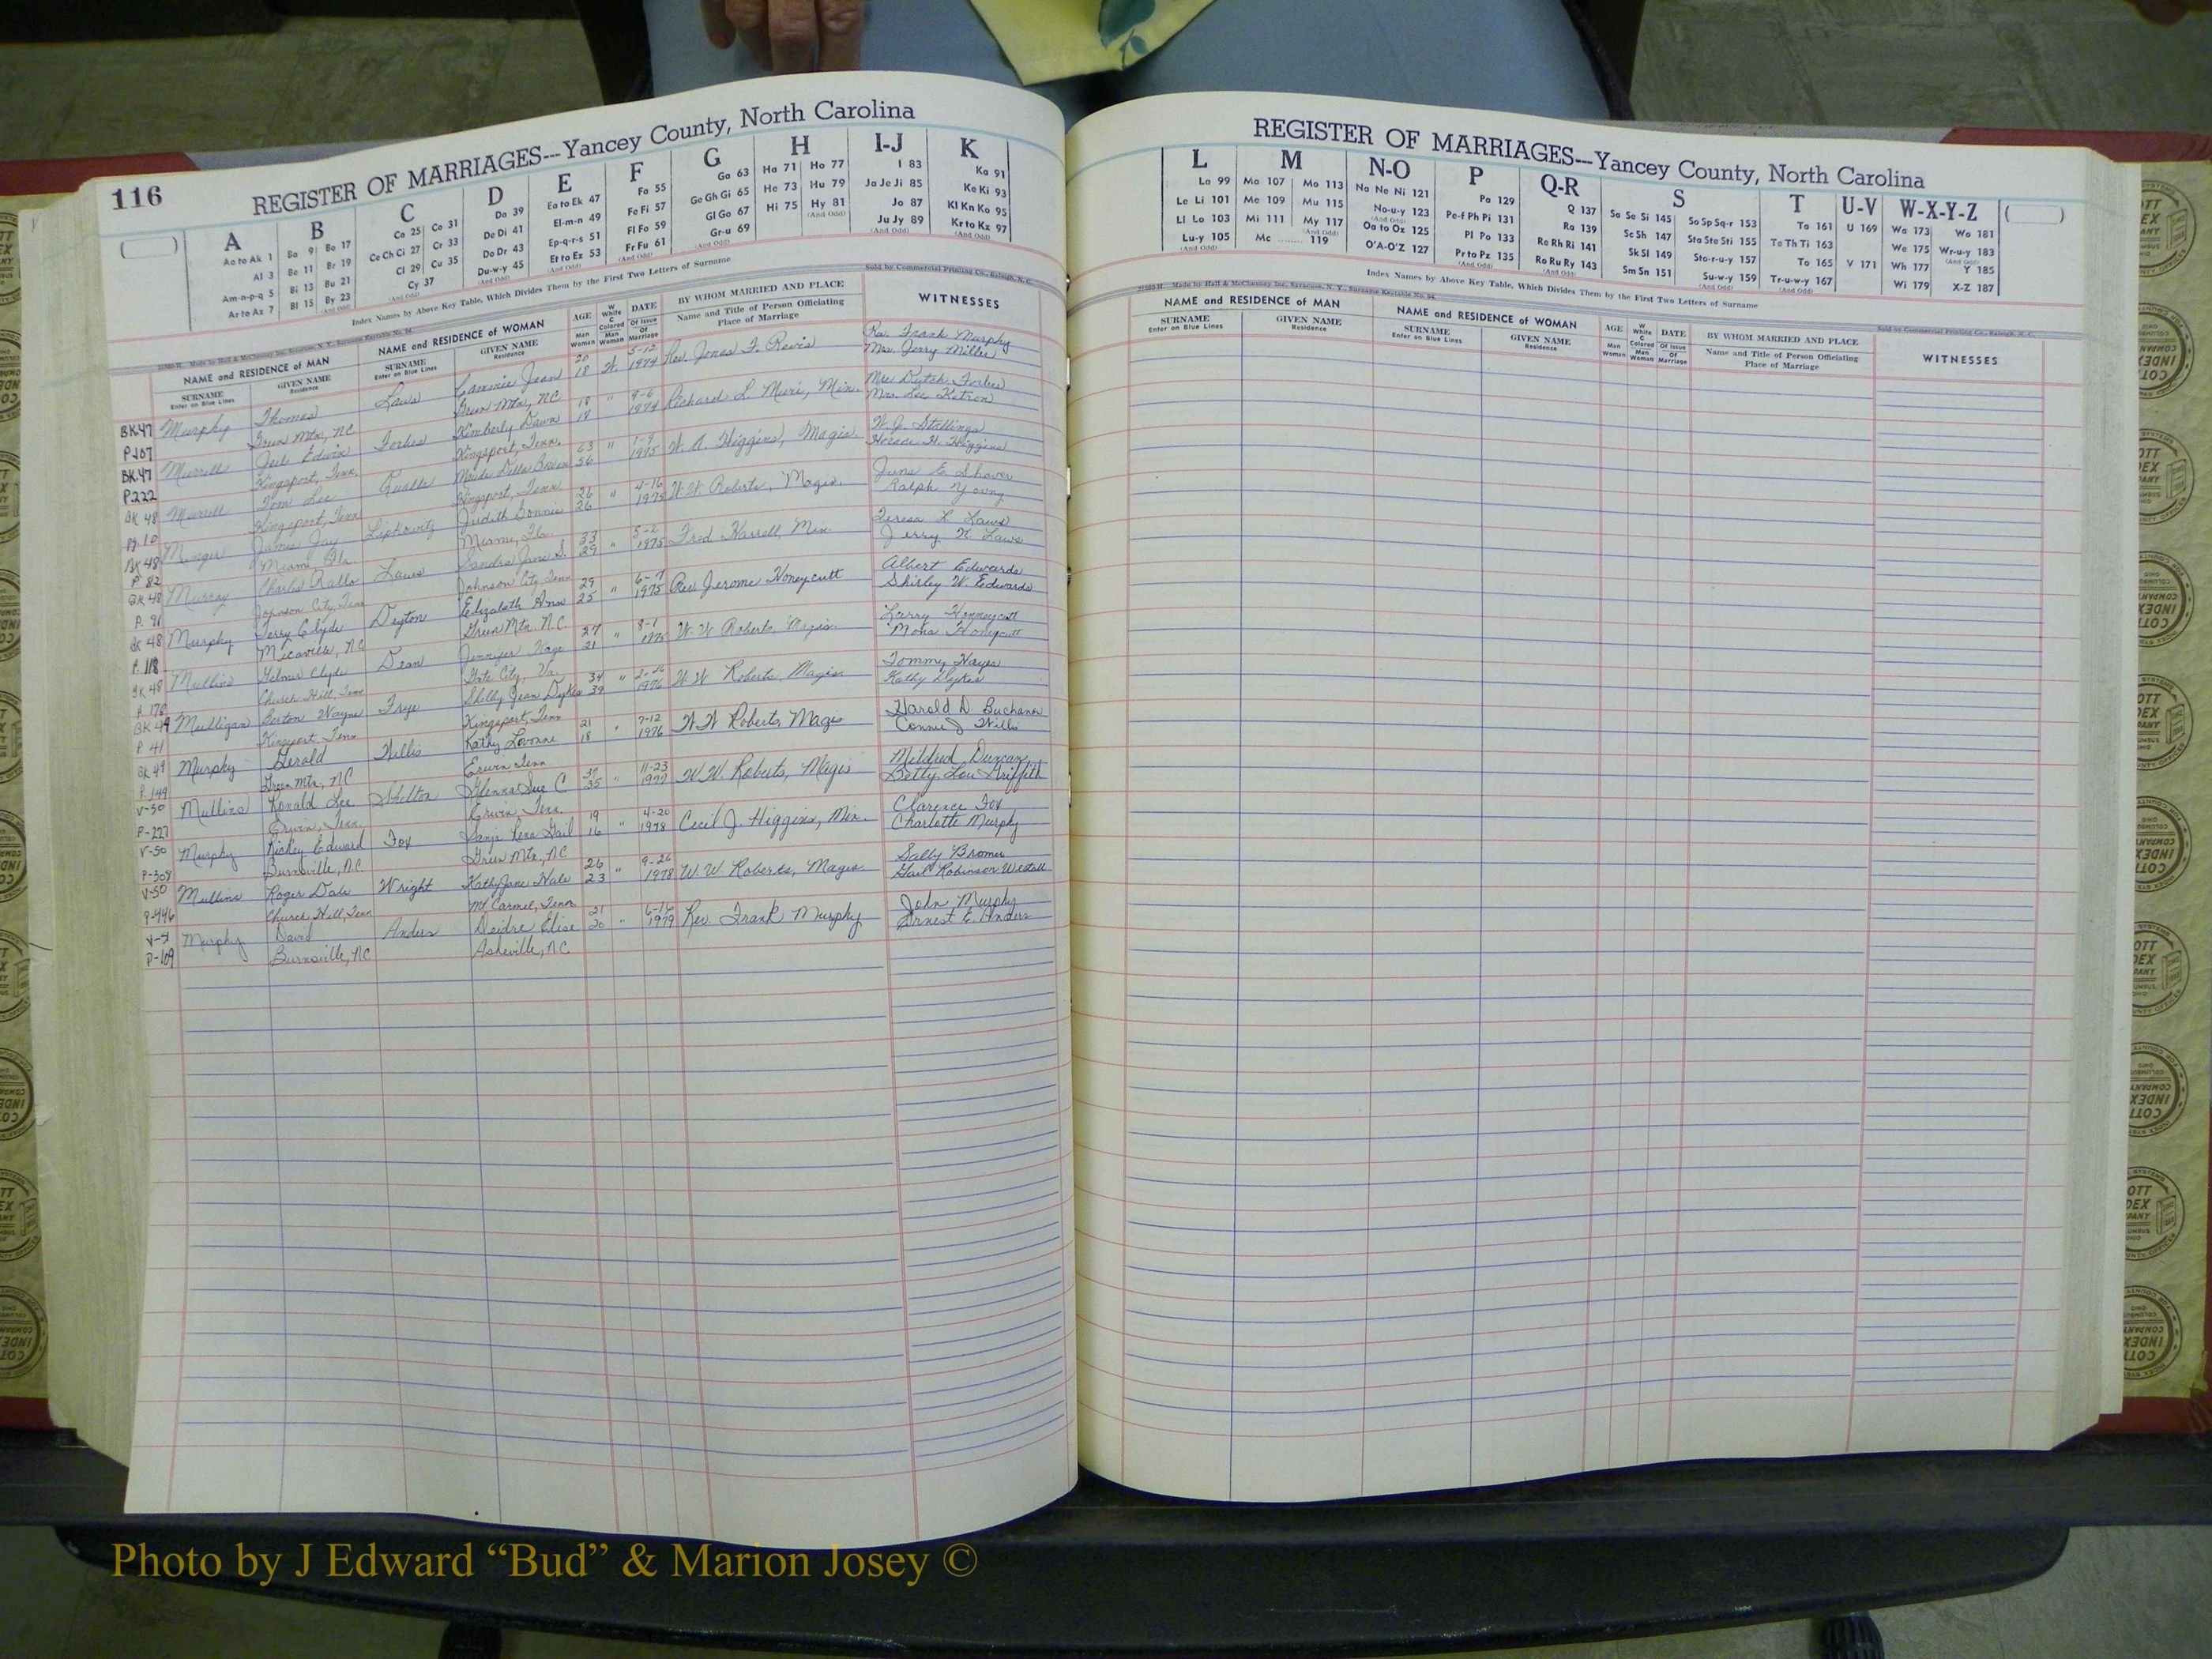 116
REGISTER OF MARRIAGES---Yancey County, North Carolina
A B C D E F G H I-J K
Aa to Ak 1
Al 3
Am-n-p-q 5
Ar to Az 7
Ba 9 Bo 17
Be 11 Br 19
Bi 13 Bu 21
Bl 15 By 23
Ca 25 Co 31
Ce Ch Ci 27 Cr 33
Cl 29 Cu 35
Cy 37
Da 39
De Di 41
Do Dr 43
Du-w-y 45
Ea to Ek 47
El-m-n 49
Ep-q-r-s 51
Et to Ez 53
Fa 55
Fe Fi 57
Fl Fo 59
Fr Fu 61
Ga 63
Ge Gh Gi 65
Gl Go 67
Gr-u 69
Ha 71 Ho 77
He 73 Hu 79
Hi 75 Hy 81
I 83
Ja Je Ji 85
Jo 87
Ju Jy 89
Ka 91
Ke Ki 93
Kl Kn Ko 95
Kr to Kz 97
Index Names by Above Key Table, Which Divides Them by the First Two Letters of Surname
Sold by Commercial Printing Co., Raleigh, N. C.
NAME and RESIDENCE OF MAN NAME and RESIDENCE OF WOMAN AGE DATE BY WHOM MARRIED AND PLACE WITNESSES
SURNAME Enter on Blue Lines GIVEN NAME Residence SURNAME Enter on Blue Lines GIVEN NAME Residence Man Woman W White C Colored Man Woman Of Issue Of Marriage Name and Title of Person Officiating Place of Marriage
BK47 Murphy Thomas Laws Cammie Jean 20 W 5-12 Rev. Jonas F. Revis Rev. Frank Murphy
P107 Green Mtn, NC Green Mtn, NC 18 1974 Mrs. Jerry Miller
BK47 Murrell Edwin Forbes Kimberly Dawn 18 " 9-6 Richard L. Min. Mrs Dutch Forbes
P222 Kingsport, Tenn. Kingsport, Tenn. 18 1974 Mrs. Lee Ketron
BK 48 Murrell Tom Lee Qualls Maude Della 63 " 1-9 W. A. Higgins, Magis. W. J. Stallings
Pg. 10 Kingsport, Tenn Kingsport, Tenn 56 1975 Horace H. Higgins
BK 48 Munger James Jay Lipkowitz Judith Bonnie 26 " 4-16 W.W. Roberts, Magis. June E. Shaver
P 82 Miami, Fla. Miami, Fla. 26 1975 Ralph Young
BK 48 Murray Charles Laws Sandra Jane S. 33 " 5-2 Fred Harrell, Min. Teresa L. Laws
P. 91 Johnson City, Tenn Johnson City, Tenn 29 1975 Jerry W. Laws
BK 48 Murphy Terry Clyde Deyton Elizabeth Ann 29 " 6-7 Rev. Jerome Honeycutt Albert Edwards
P. 118 Micaville, N.C. Green Mtn. N.C. 25 1975 Shirley W. Edwards
BK 48 Mullins Clyde Dean Jennifer Kaye 27 " 8-1 W.W. Roberts, Magis. Larry Honneycutt
P. 170 Church Hill, Tenn Gate City, Va. 21 1975 Mona Honeycutt
BK 49 Mulligan Wayne Frye Shelby Jean Dykes 34 " 1976 W W Roberts, Magis Tommy Hayes
P 41 Kingsport, Tenn Kingsport, Tenn 39 Kathy Dykes
BK 49 Murphy Gerald Willis Kathy Lovonne 21 " 7-12 W W Roberts, Magis Harold D Buchanan
P. 149 Green Mtn, NC Erwin Tenn 18 1976 Connie J Willis
V-50 Mullins Ronald Lee Shelton Glenna Sue C " 11-23 W.W. Roberts, Magis Mildred Duncan
P-227 Erwin, Tenn. Erwin, Tenn. 35 1977 Betty Lou Griffith
V-50 Murphy Rickey Edward Fox Gail 19 " 4-20 Cecil J. Higgins, Min. Clarence Fox
P-308 Burnsville, N.C. Green Mtn., NC 16 1978 Charlotte Murphy
V-50 Mullins Roger Dale Wright Kathy Jane Hale 26 " 9-26 W. W. Roberts, Magis Sally Bromer
P-446 Church Hill, Tenn Mt. Carmel, Tenn 23 1978 Gail Robinson Westall
V-51 Murphy David Anders Deidre Elise 21 " 6-16 Rev. Frank Murphy John Murphy
P-109 Burnsville, NC Asheville, NC 20 1979 Ernest E. Anders
REGISTER OF MARRIAGES---Yancey County, North Carolina
L M N-O P Q-R S T U-V W-X-Y-Z
La 99
Le Li 101
Ll Lo 103
Lu-y 105
Ma 107 Mo 113
Me 109 Mu 115
Mi 111 My 117
Mc 119
Na Ne Ni 121
No-u-y 123
Oa to Oz 125
O'A-O'Z 127
Pa 129
Pe-f Ph Pi 131
Pl Po 133
Pr to Pz 135
Q 137
Ra 139
Re Rh Ri 141
Ro Ru Ry 143
Sa Se Si 145 So Sp Sq-r 153
Sc Sh 147 Sta Ste Sti 155
Sk Sl 149 Sto-r-u-y 157
Sm Sn 151 Su-w-y 159
Ta 161
Te Th Ti 163
To 165
Tr-u-w-y 167
U 169
V 171
Wa 173 Wo 181
We 175 Wr-u-y 183
Wh 177 Y 185
Wi 179 X-Z 187
Index Names by Above Key Table, Which Divides Them by the First Two Letters of Surname
Made by Hall & McChesney Inc., Syracuse, N. Y.
Sold by Commercial Printing Co., Raleigh, N. C.
NAME and RESIDENCE OF MAN NAME and RESIDENCE OF WOMAN AGE DATE BY WHOM MARRIED AND PLACE WITNESSES
SURNAME Enter on Blue Lines GIVEN NAME Residence SURNAME Enter on Blue Lines GIVEN NAME Residence Man Woman W White C Colored Man Woman Of Issue Of Marriage Name and Title of Person Officiating Place of Marriage
Photo by J Edward “Bud” & Marion Josey ©